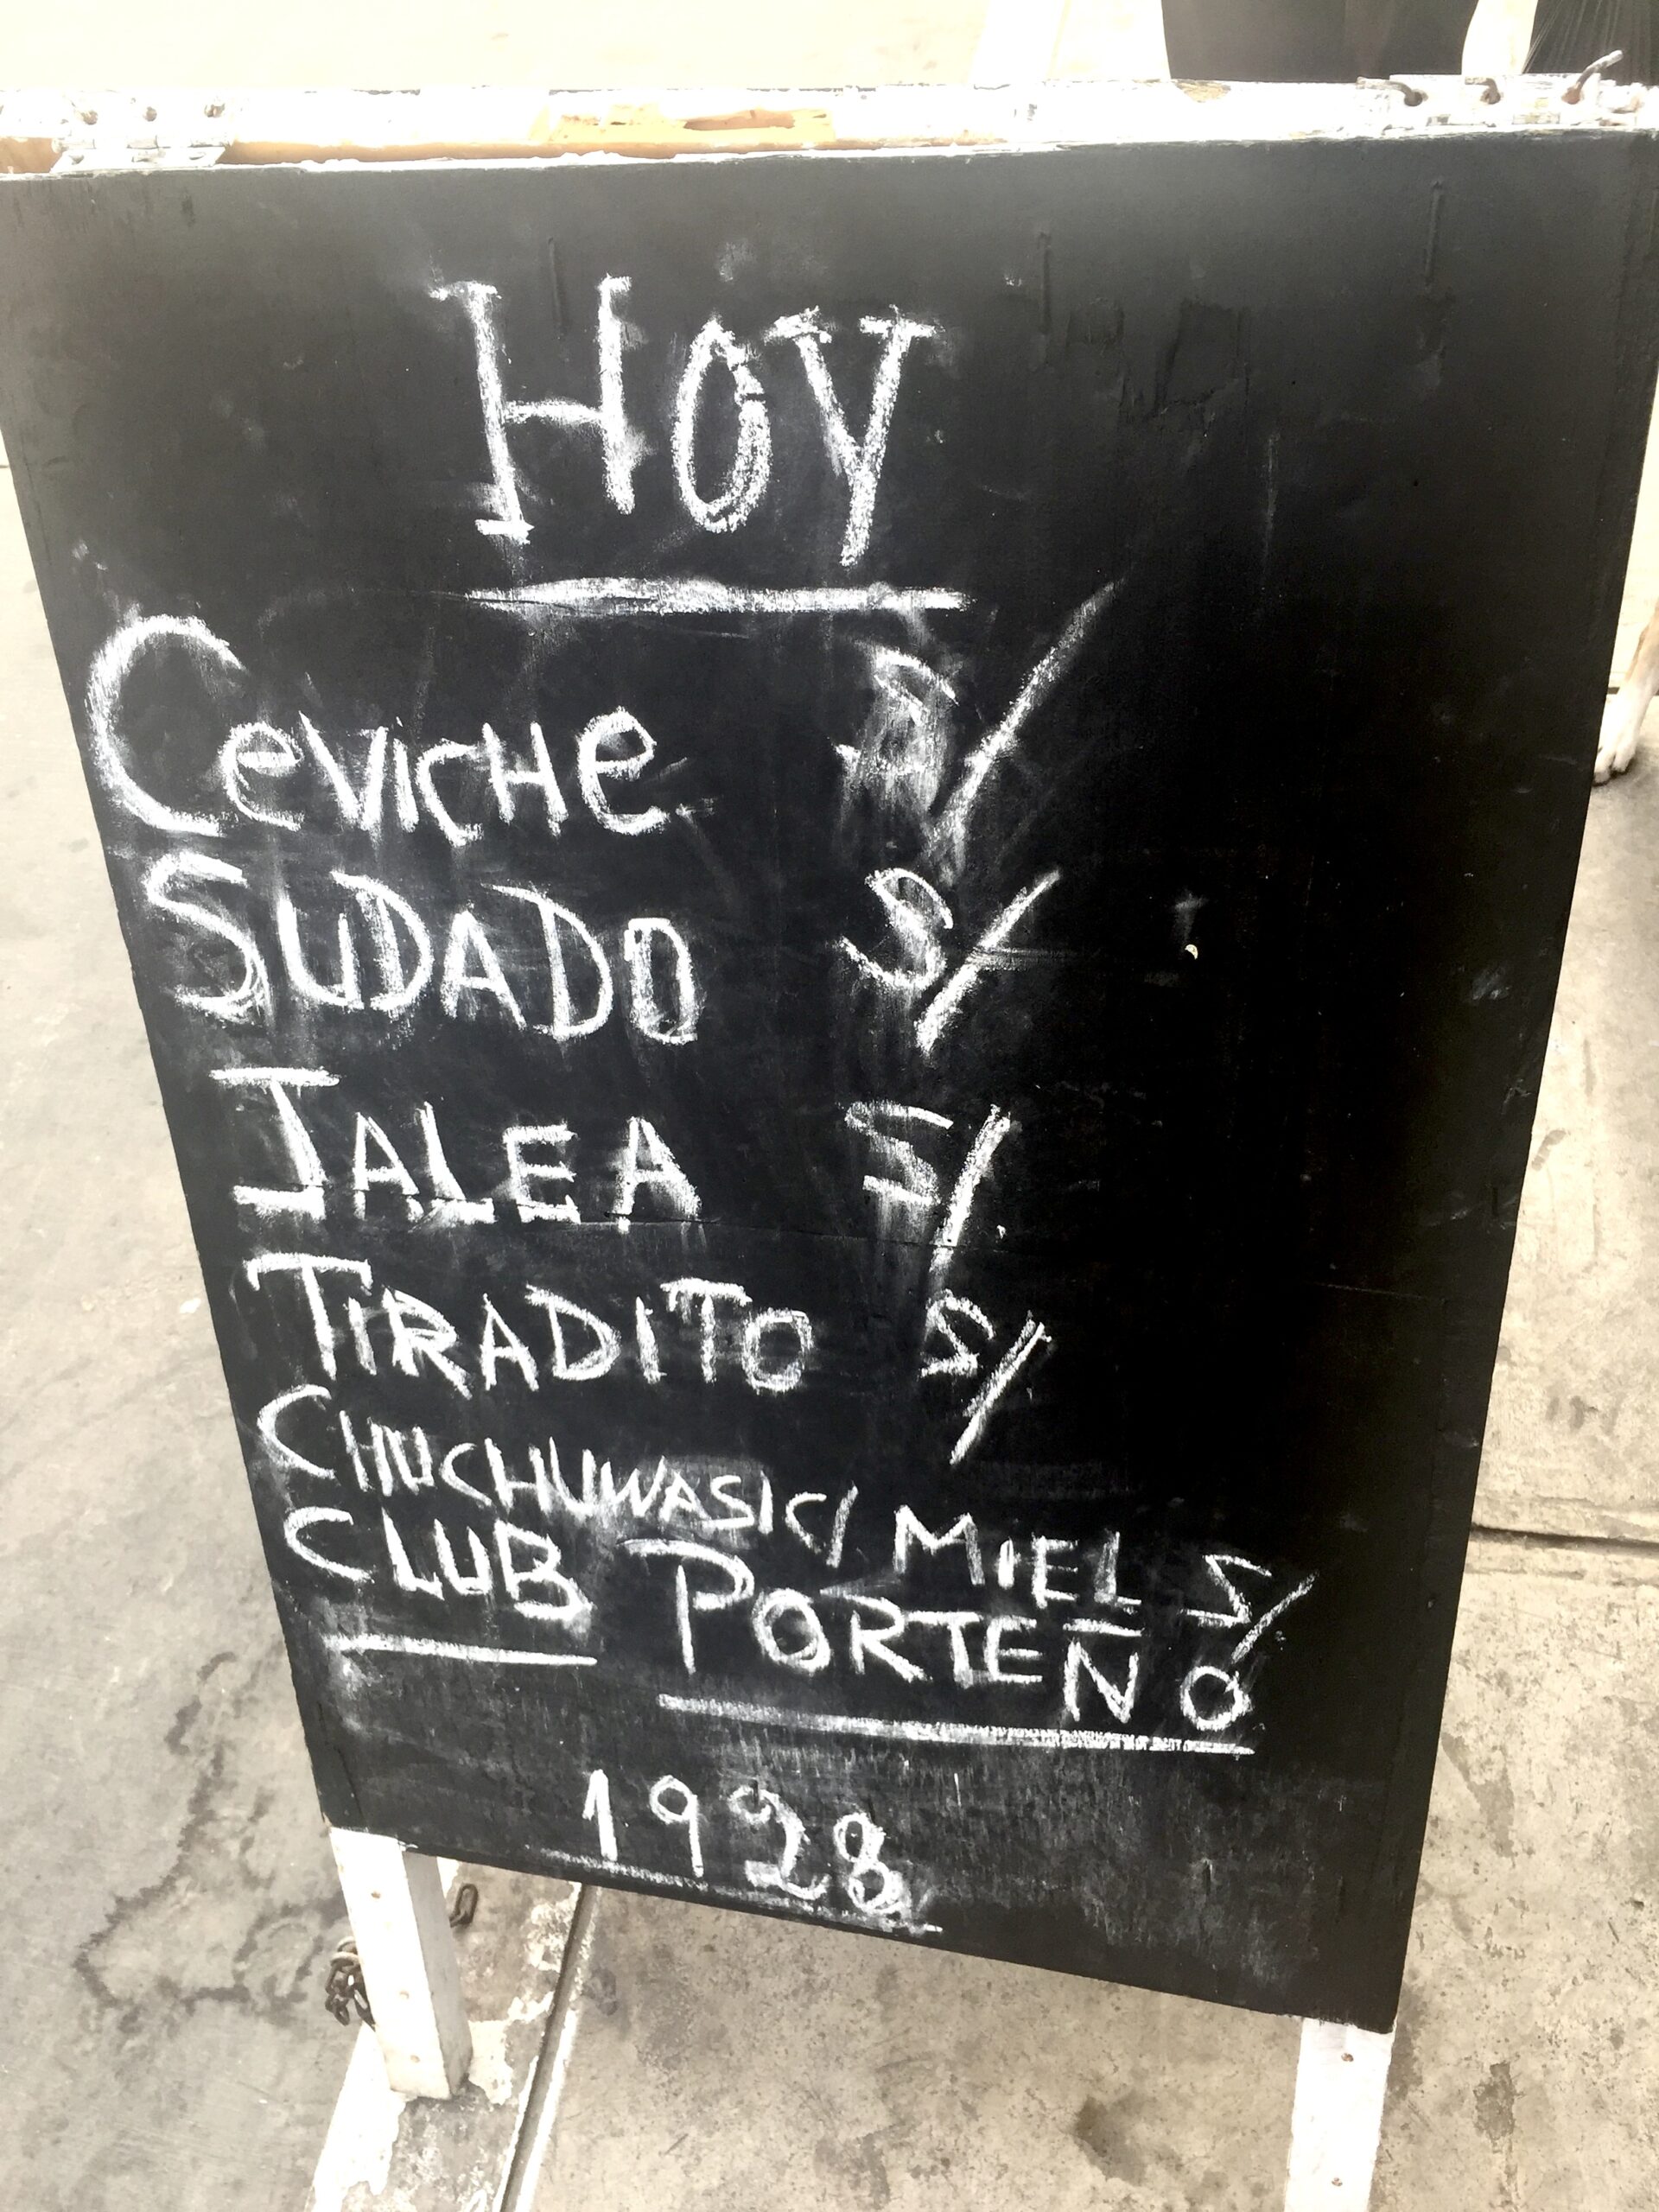 HOY
CeVicHe S/
SUDADO S/
JALEA S/
TIRADITO S/
CHUCHUWASI C/ MIEL S/
CLUB PORTEÑO
1928